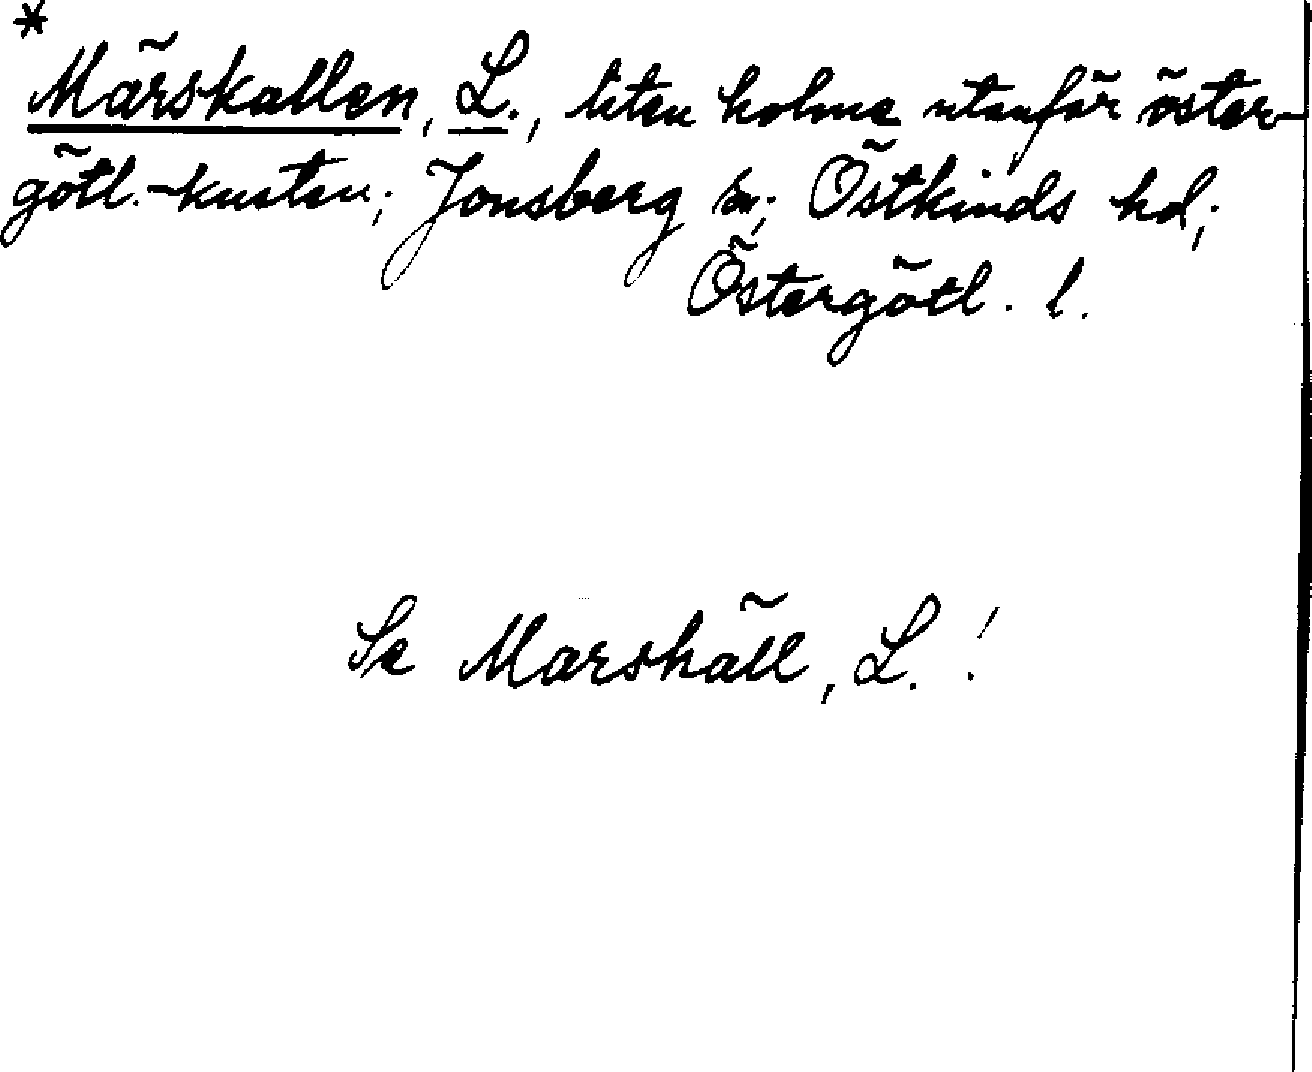 *
Märskallen, L., liten holme utanför öster-
götl.-kusten; Jonsberg sn; Östkinds hd;
Östergötl. l.
Se Marshäll, L.!